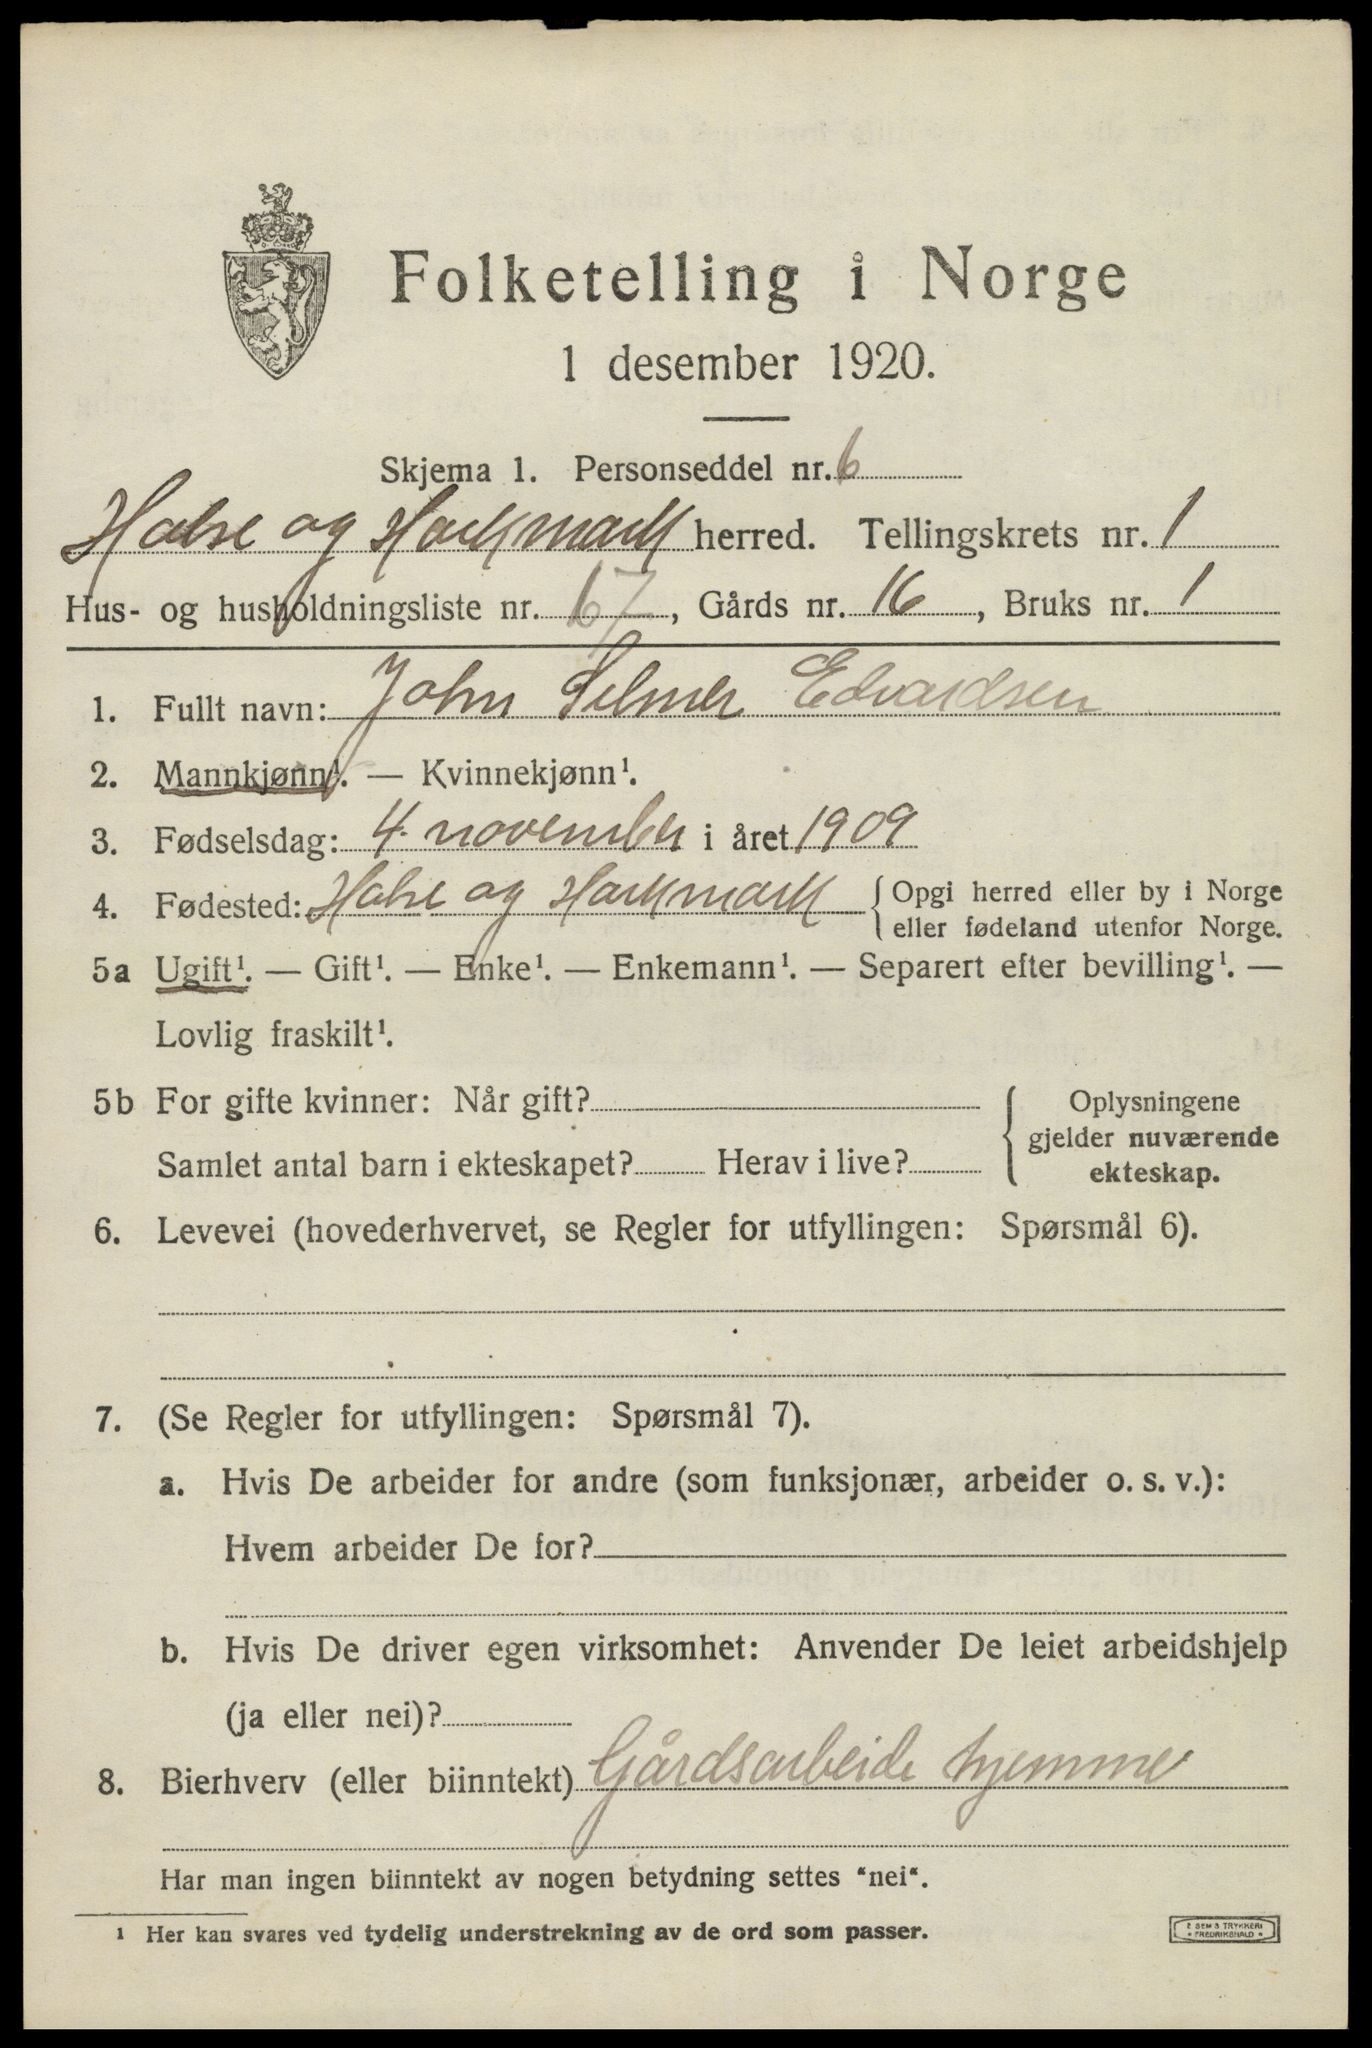 Folketelling i Norge
1 desember 1920.
Skjema 1. Personseddel nr. 6
Halse og Harkmark herred. Tellingskrets nr. 1
Hus- og husholdningsliste nr. 17, Gårds nr. 16, Bruks nr. 1
1. Fullt navn: John Selmer Edvardsen
2. Mannkjønn¹. — Kvinnekjønn¹.
3. Fødselsdag: 4. november i året 1909
4. Fødested: Halse og Harkmark { Opgi herred eller by i Norge
eller fødeland utenfor Norge.
5a Ugift¹. — Gift¹. — Enke¹. — Enkemann¹. — Separert efter bevilling¹. —
Lovlig fraskilt¹.
5b For gifte kvinner: Når gift?
Samlet antal barn i ekteskapet? Herav i live?
{ Oplysningene
gjelder nuværende
ekteskap.
6. Levevei (hovederhvervet, se Regler for utfyllingen: Spørsmål 6).
7. (Se Regler for utfyllingen: Spørsmål 7).
a. Hvis De arbeider for andre (som funksjonær, arbeider o. s. v.):
Hvem arbeider De for?
b. Hvis De driver egen virksomhet: Anvender De leiet arbeidshjelp
(ja eller nei)?
8. Bierhverv (eller biinntekt) Gårdsarbeide hjemme
Har man ingen biinntekt av nogen betydning settes "nei".
¹ Her kan svares ved tydelig understrekning av de ord som passer.
SEM & TRYKKERI
FREDRIKSHALD